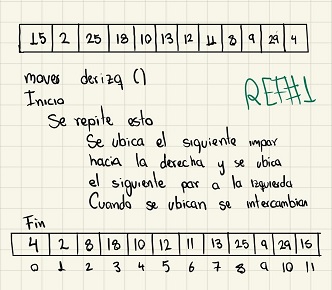 15 2 25 18 10 13 12 11 8 9 29 4
mover derizq ()
Inicio
REF#1
Se repite esto
Se ubica el siguiente impar
hacia la derecha y se ubica
el siguiente par a la izquierda
Cuando se ubican se intercambian
Fin
4 2 8 18 10 12 11 13 25 9 29 15
0 1 2 3 4 5 6 7 8 9 10 11